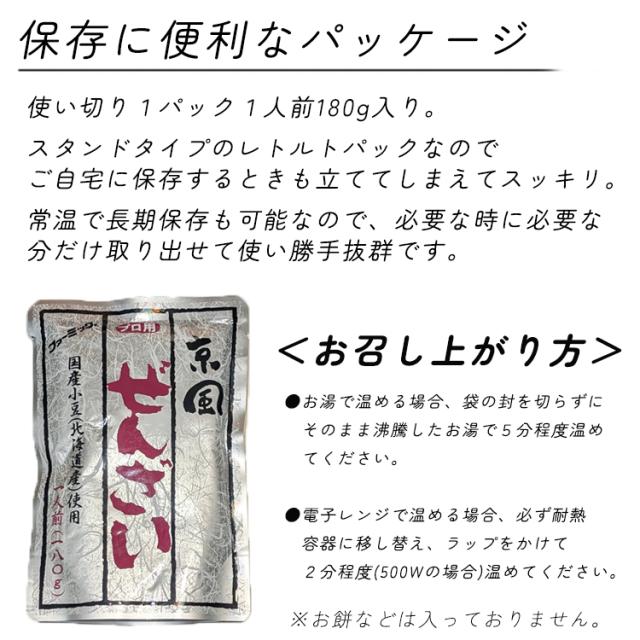 保存に便利なパッケージ
使い切り1パック1人前180g入り。
スタンドタイプのレトルトパックなので
ご自宅に保存するときも立ててしまえてスッキリ。
常温で長期保存も可能なので、必要な時に必要な
分だけ取り出せて使い勝手抜群です。
ファーミック
プロ用
京風
ぜんざい
国産小豆(北海道産)使用
一人前(一八〇g)
＜お召し上がり方＞
●お湯で温める場合、袋の封を切らずに
そのまま沸騰したお湯で5分程度温め
てください。
●電子レンジで温める場合、必ず耐熱
容器に移し替え、ラップをかけて
2分程度(500Wの場合)温めてください。
※お餅などは入っておりません。